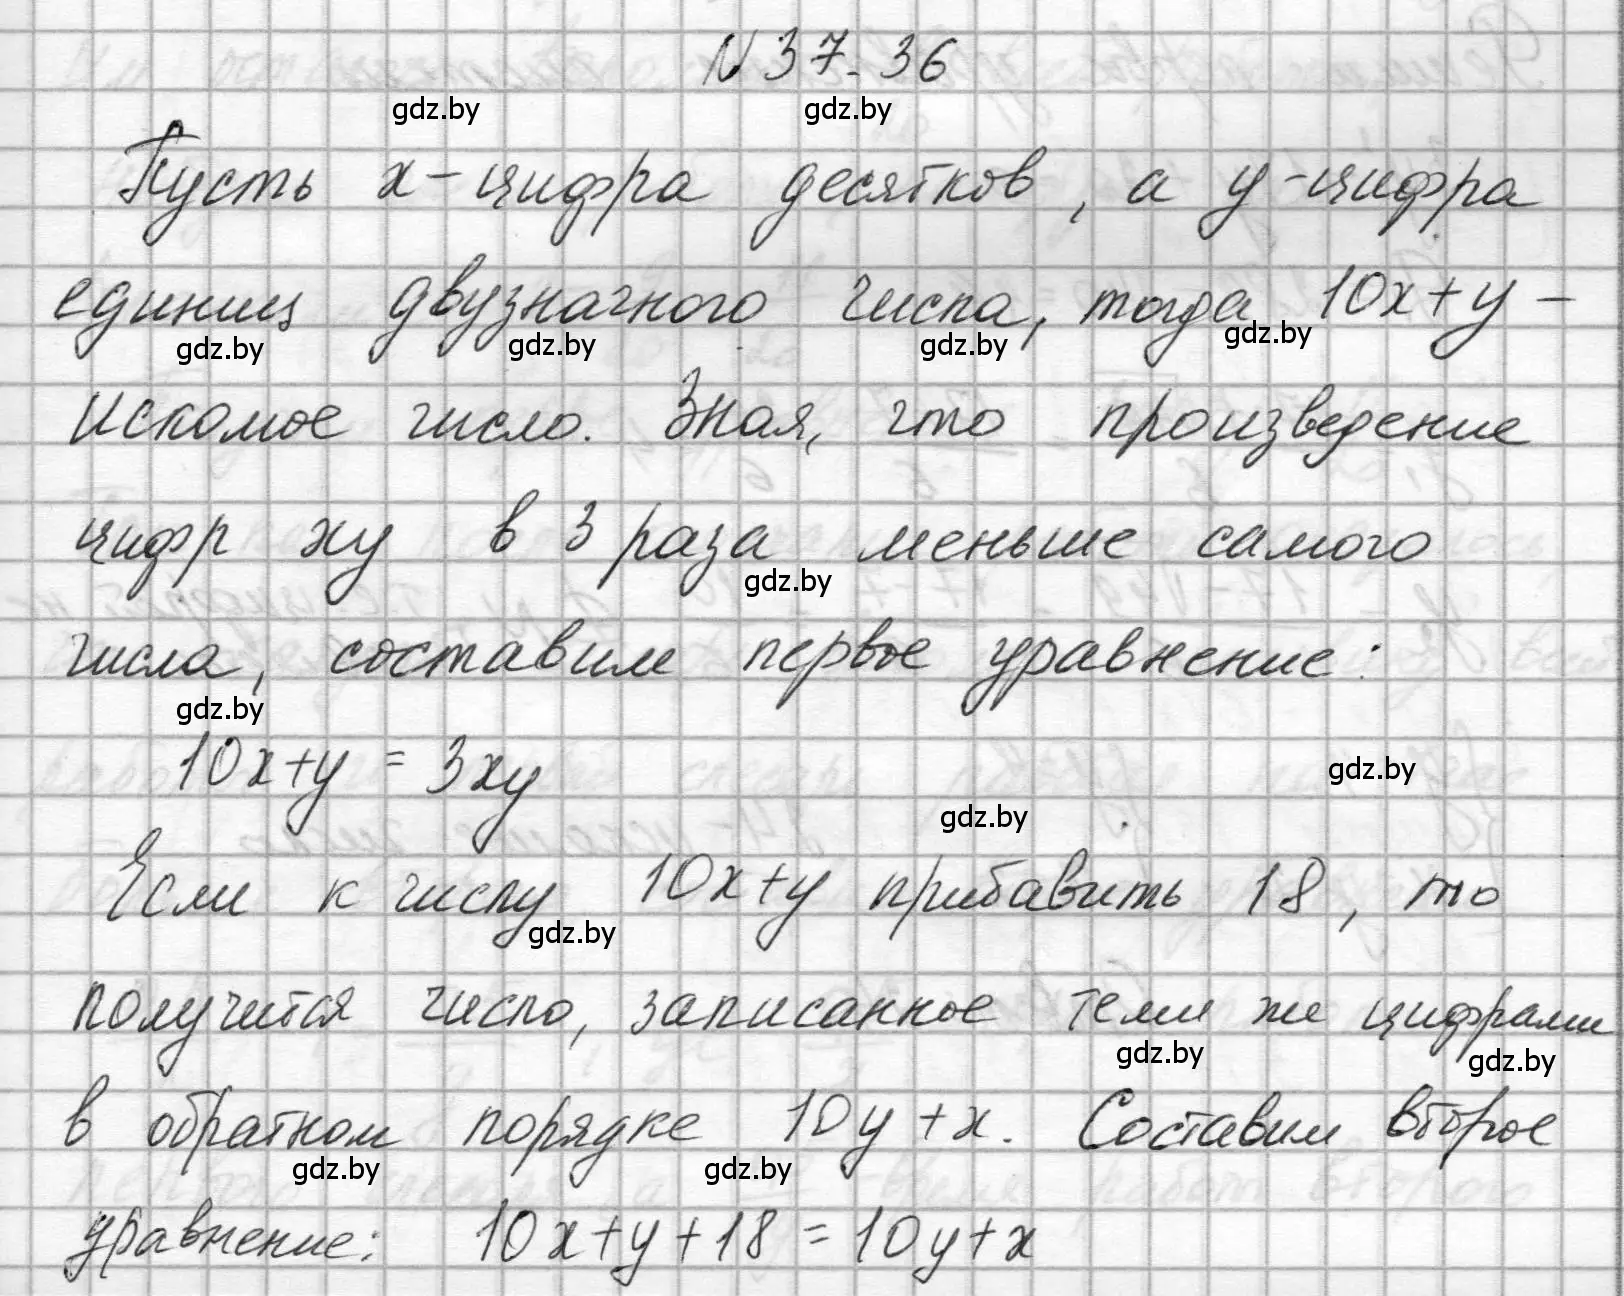 N 37-36
gdz.by gdz.by
Пусть x - цифра десятков, а y - цифра
единиц двузначного числа, тогда 10x+y -
gdz.by gdz.by gdz.by gdz.by
искомое число. Зная, что произведение
цифр xy в 3 раза меньше самого
gdz.by
числа, составим первое уравнение:
gdz.by
10x+y = 3xy
gdz.by
gdz.by
Если к числу 10x+y прибавить 18, то
gdz.by
получится число, записанное теми же цифрами
gdz.by gdz.by
в обратном порядке 10y+x. Составим второе
gdz.by gdz.by
уравнение: 10x+y+18=10y+x